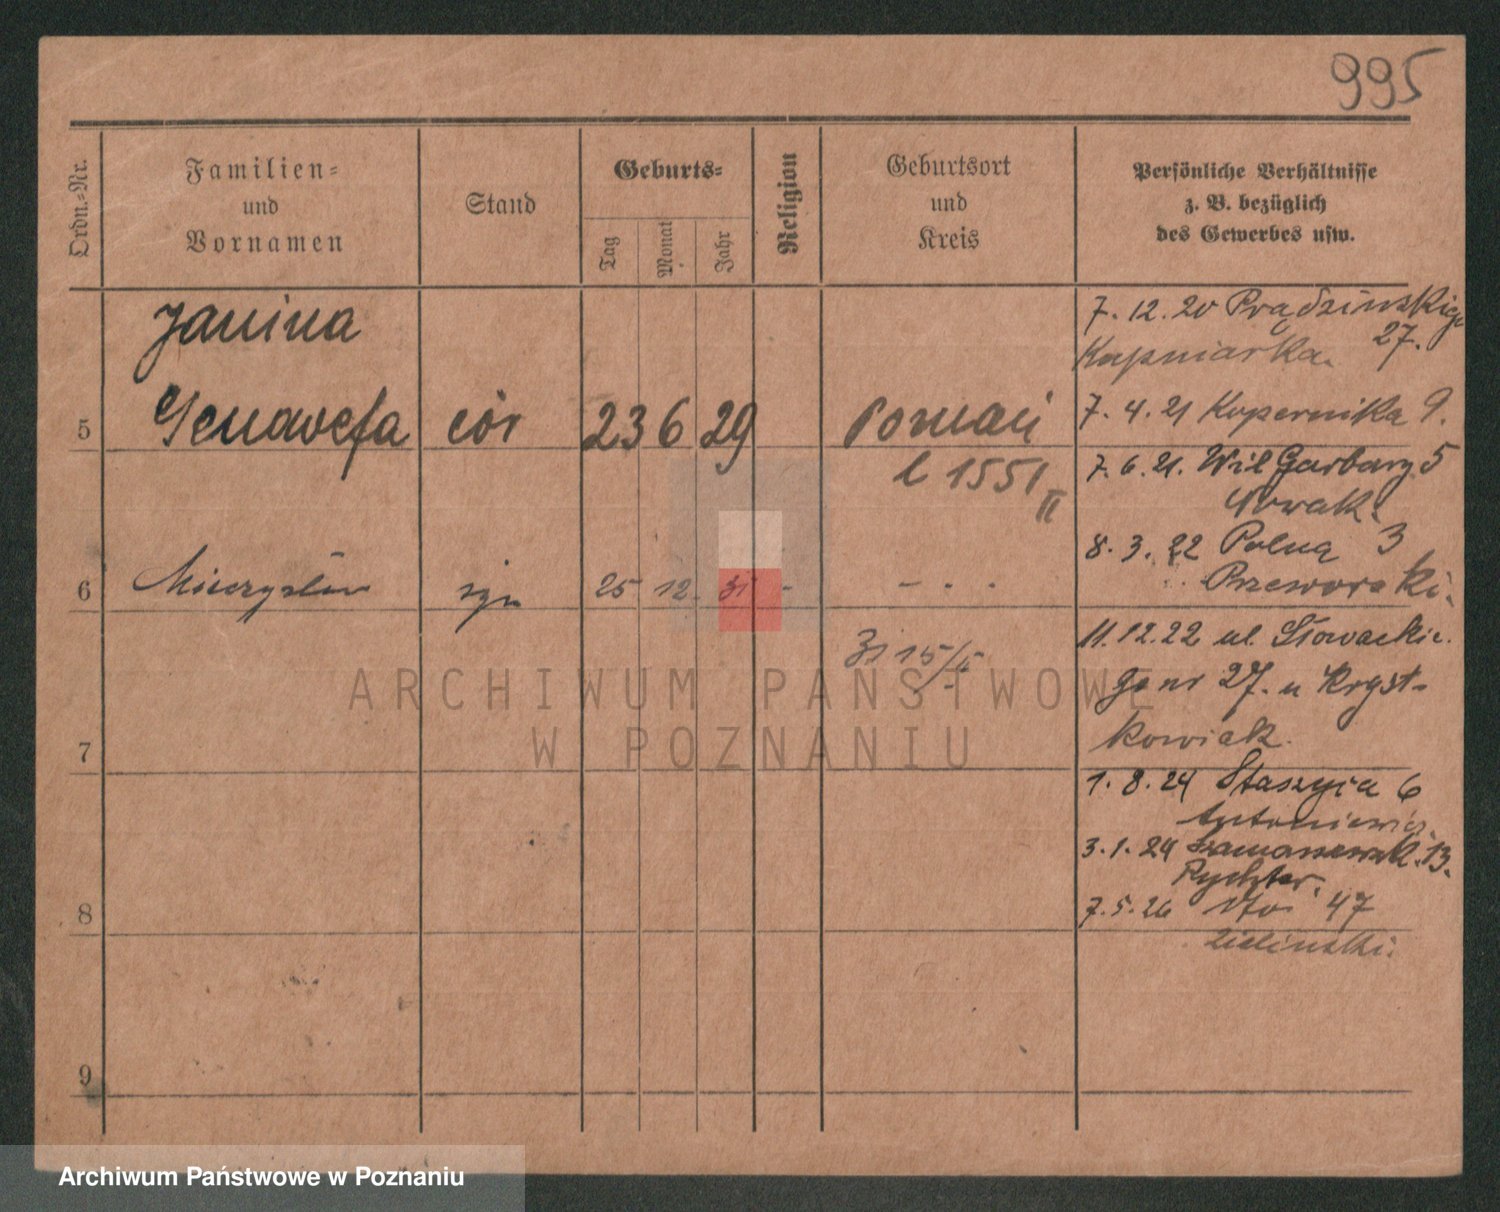 995
Ordn.-Nr.
Familien-
und
Vornamen
Stand
Geburts-
Tag
Monat
Jahr
Religion
Geburtsort
und
Kreis
Persönliche Verhältnisse
z. B. bezüglich
des Gewerbes usw.
Janina
5 Genowefa cór 23 6 29 Poznań
l 1551
II
6 Mieczysław syn 25 12 31 - - - -
31 15/
7
8
9
7. 12. 20 Prądzinskiego
27.
Kapniarka.
7. 4. 21 Kopernika 9.
7. 6. 21. Wil Garbary 5
Nowak.
8. 3. 22 Polna 3
Przeworski.
11. 12. 22 ul. Słowackie
go nr 27. u Kryst-
kowiak.
1. 8. 24 Staszyca 6
Antoniewicz.
3. 1. 24 13.
Rychter.
7. 5. 26 47
Zieliński.
ARCHIWUM PAŃSTWOWE
W POZNANIU
Archiwum Państwowe w Poznaniu